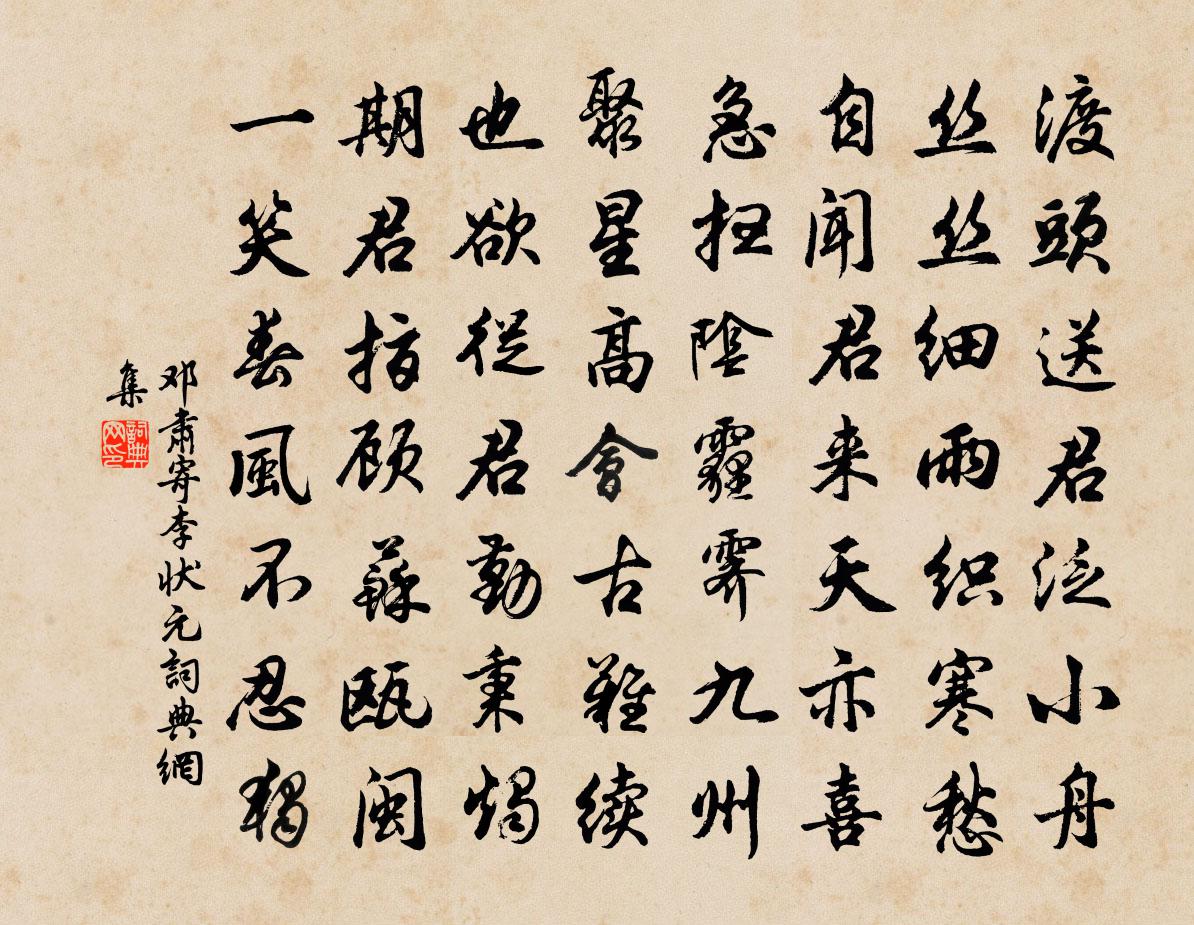 渡頭送君泛小舟
丝丝细雨织寒愁
自闻君来天亦喜
急扭陰霾霁九州
聚星高會古難续
也欲從君勤秉燭
期君指顾蘇瓯闽
一笑春風不忍獨
邓肅寄李状元詞典網
集
詞典
网印